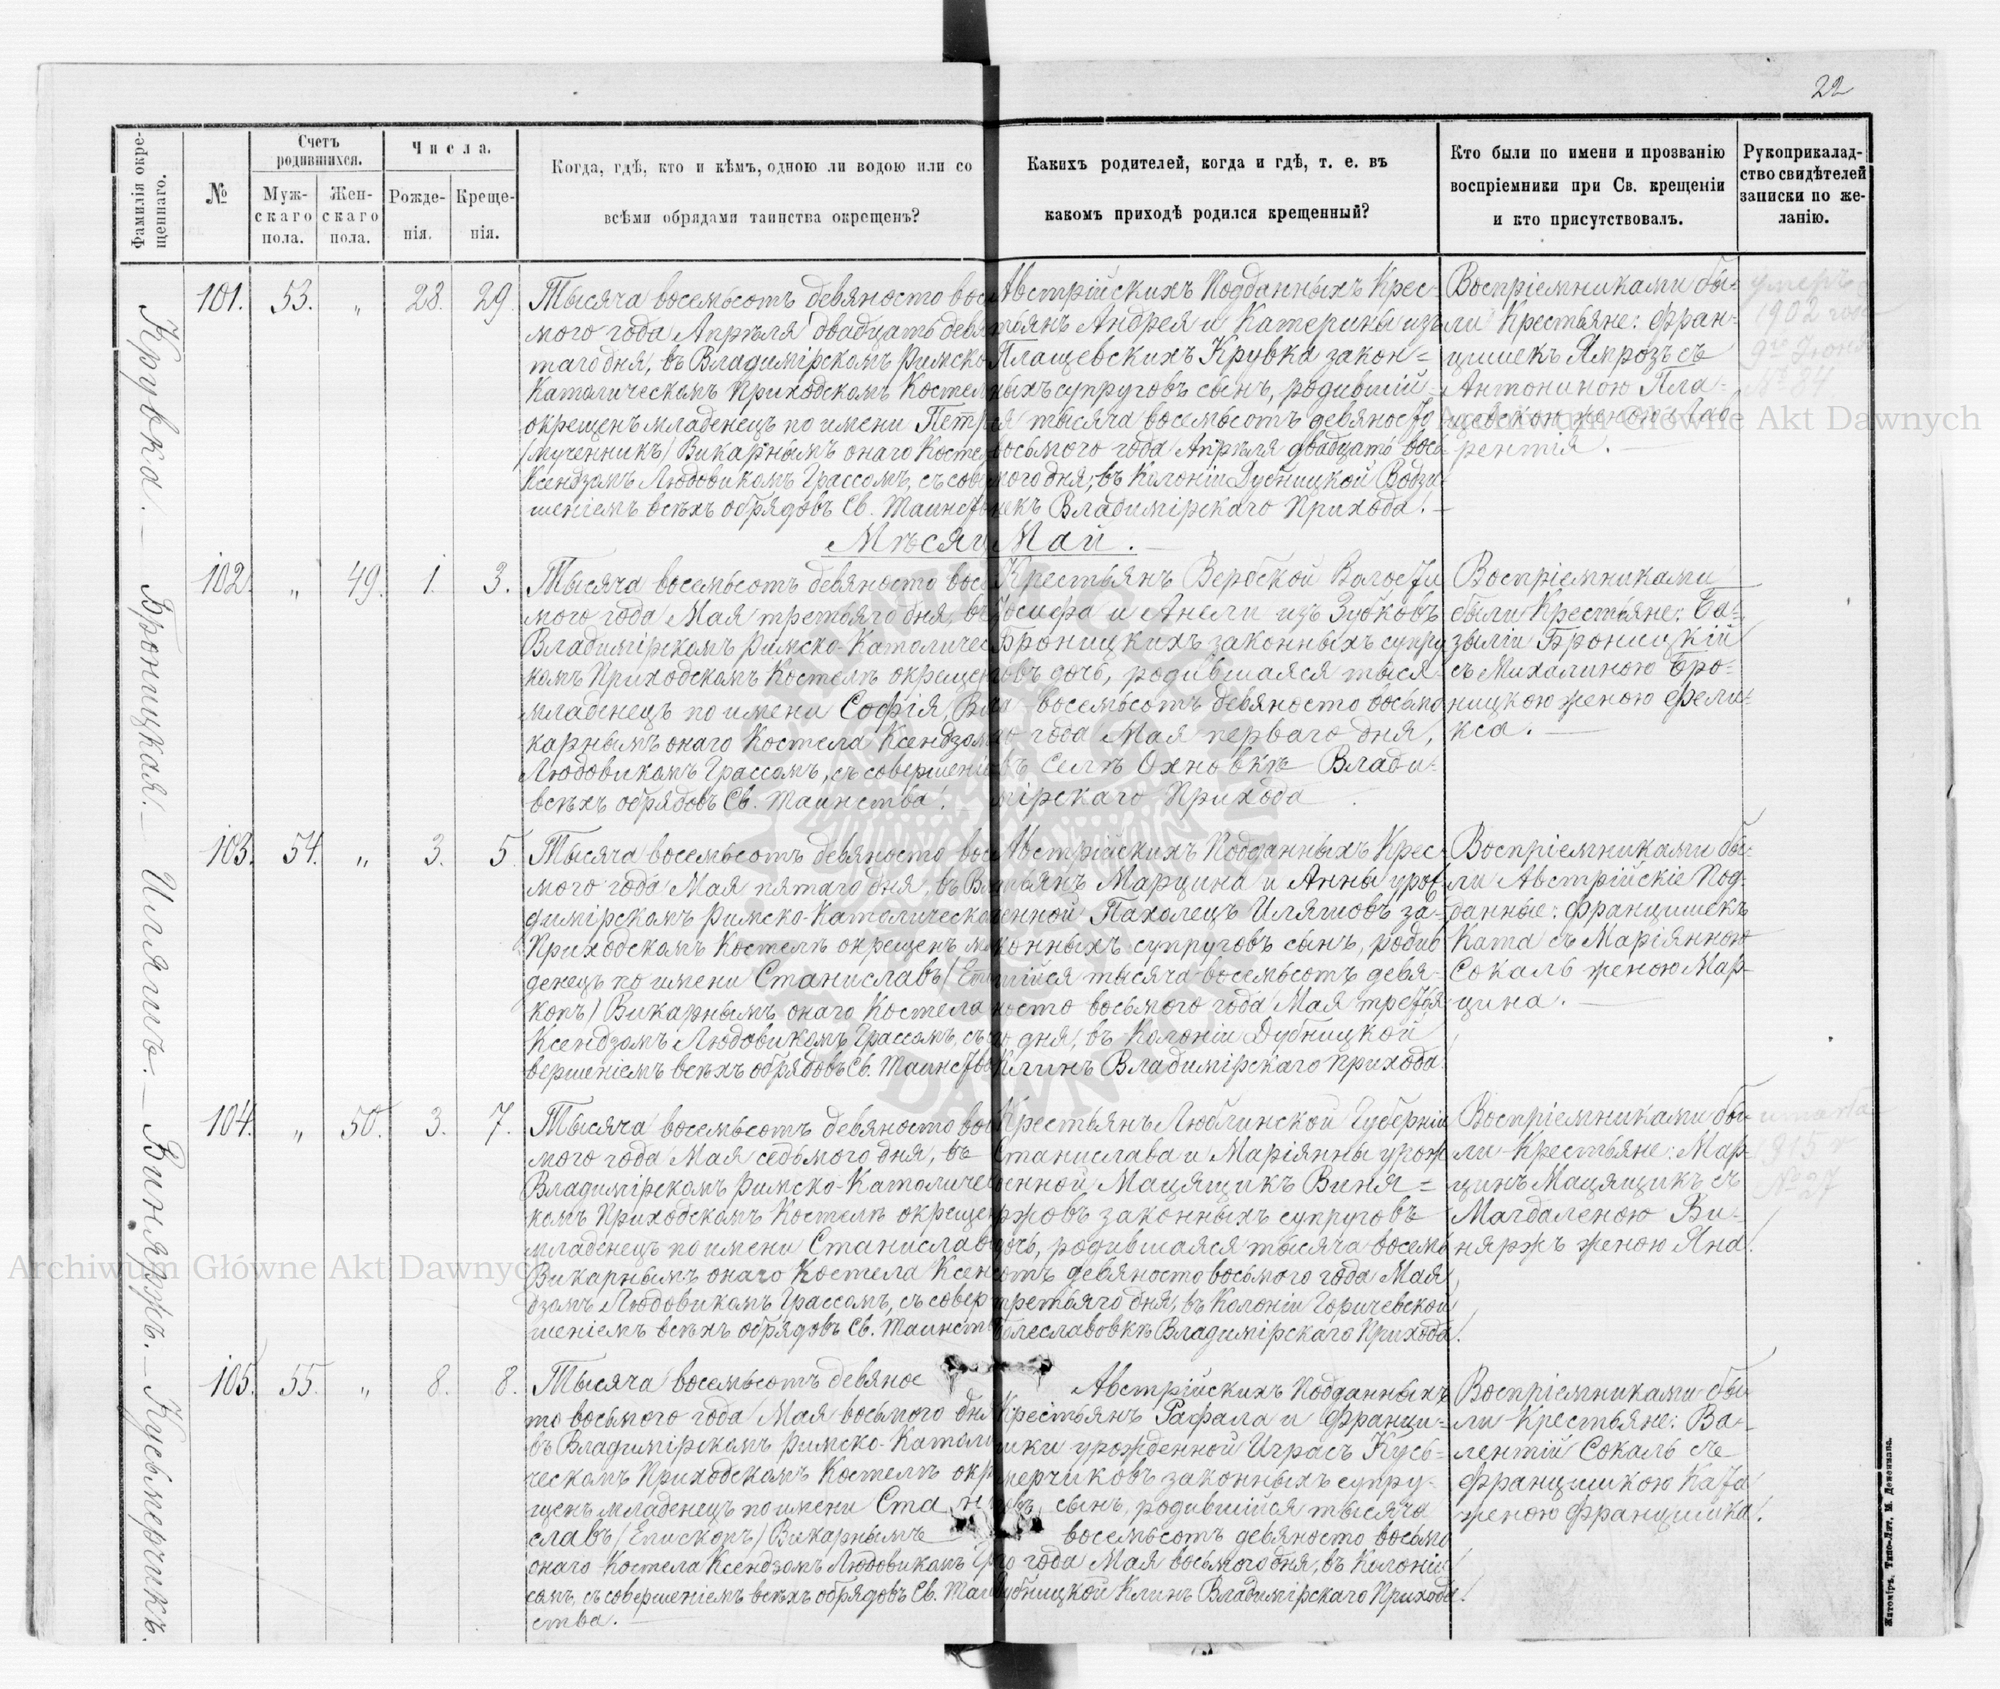 22
Фамилія окре-
щеннаго.
№
Счетъ
родившихся.
Муж-
скаго
пола.
Жен-
скаго
пола.
Числа.
Рожде-
нія.
Креще-
нія.
Когда, гдѣ, кто и кѣмъ, одною ли водою или со
всѣми обрядами таинства окрещенъ?
Какихъ родителей, когда и гдѣ, т. е. въ
какомъ приходѣ родился крещенный?
Кто были по имени и прозванію
воспріемники при Св. крещеніи
и кто присутствовалъ.
Рукоприклад-
ство свидѣтелей
записки по же-
ланію.
Крувка. —
101. 53. „ 28. 29.
Тысяча восемьсотъ девяносто вось
мого года Апрѣля двадцать девя
таго дня, въ Владимірскомъ Римско
Католическомъ Приходскомъ Костел
окрещенъ младенецъ по имени Петр
(мученикъ) Викарнымъ онаго Косте
Ксендзомъ Людовикомъ Грассомъ, съ сове
шеніемъ всѣхъ обрядовъ Св. Таинств
Австрійскихъ Подданныхъ Крес-
тьянъ Андрея и Катерины изъ
Плащевскихъ Крувка закон=
ныхъ супруговъ сынъ, родившій-
я тысяча восемьсотъ девяносто
восьмого года Апрѣля двадцать вось
мого дня, въ Колоніи Дубницкой Водзи
некъ Владимірскаго Прихода! —
Воспріемниками бы-
ли Крестьяне: Фран-
цишекъ Ямрозъ съ
Антониною Пла-
щевскою женою Лав-
рентія. —
умеръ
1902 года
9го Іюня
№ 84
Мѣсяц Май. —
Броницкая. —
102. „ 49. 1. 3.
Тысяча восемьсотъ девяносто вось
мого года Мая третьяго дня, въ
Владимірскомъ Римско-Католичес
комъ Приходскомъ Костелѣ окрещен
младенецъ по имени Софія, Ви
карнымъ онаго Костела Ксендзом
Людовикомъ Грассомъ, съ совершені
всѣхъ обрядовъ Св. Таинства!.
Крестьянъ Вербской Волости
Іосифа и Анели изъ Зубковъ
Броницкихъ законныхъ супру
овъ дочь, родившаяся тыся-
ча восемьсотъ девяносто восьмо
го года Мая перваго дня,
въ Селѣ Охновкѣ Влади-
мірскаго Прихода
Воспріемниками
были Крестьяне: Ба-
зылій Броницкій
съ Михалиною Бро-
ницкою женою Фели-
кса. —
Иляшъ. —
103. 54. „ 3. 5.
Тысяча восемьсотъ девяносто вось
мого года Мая пятаго дня, въ Вла
димірскомъ Римско-Католическо
Приходскомъ Костелѣ окрещенъ мла
денецъ по имени Станиславъ (Епи
копъ) Викарнымъ онаго Костела
Ксендзомъ Людовикомъ Грассомъ, съ со
вершеніемъ всѣхъ обрядовъ Св. Таинства
Австрійскихъ Подданныхъ Крес-
тьянъ Марцина и Анны урож
денной Пахолецъ Иляшовъ за-
конныхъ супруговъ сынъ, родив
шійся тысяча восемьсотъ девя-
носто восьмого года Мая третья
го дня, въ Колоніи Дубницкой
Клинъ Владимірскаго Прихода
Воспріемниками бы-
ли Австрійскіе Под-
данные: Францишекъ
Ката съ Маріянною
Сокаль женою Мар-
цина. —
Виняржъ. —
104. „ 50. 3. 7.
Тысяча восемьсотъ девяносто вось
мого года Мая седьмого дня, въ
Владимірскомъ Римско-Католичес
комъ Приходскомъ Костелѣ окрещен
младенецъ по имени Станислав
Викарнымъ онаго Костела Ксен
дзомъ Людовикомъ Грассомъ, съ совер
шеніемъ всѣхъ обрядовъ Св. Таинств
Крестьянъ Люблинской Губерніи
Станислава и Маріянны урож
денной Мацящикъ Виня=
ржовъ законныхъ супруговъ
дочь, родившаяся тысяча восемь
сотъ девяносто восьмого года Мая
третьяго дня, въ Колоніи Горичевской
Болеславовкѣ Владимірскаго Прихода!
Воспріемниками бы-
ли Крестьяне: Мар-
цинъ Мацящикъ съ
Магдаленою Ви-
няржъ женою Яна.
umarła
1915 r
№ 27
Кусьмерчикъ.
105. 55. „ 8. 8.
Тысяча восемьсотъ девянос
то восьмого года Мая восьмого дня
въ Владимірскомъ Римско-Католи
ческомъ Приходскомъ Костелѣ окре
щенъ младенецъ по имени Стани
славъ (Епископъ) Викарнымъ
онаго Костела Ксендзомъ Людовикомъ Гра
сомъ, съ совершеніемъ всѣхъ обрядовъ Св. Таин
ства. —
Австрійскихъ Подданныхъ
Крестьянъ Рафала и Франци-
шки урожденной Играсъ Кусь-
мерчиковъ законныхъ супру-
говъ сынъ, родившійся тысяча
восемьсотъ девяносто восьмо
го года Мая восьмого дня, въ Колоніи
Дубницкой Клинъ Владимірскаго Прихода!
Воспріемниками бы-
ли Крестьяне: Ва-
лентій Сокаль съ
Францишкою Ката
женою Францишка!
Житоміръ, Типо-Лит. М. Дененмана.
Archiwum Główne Akt Dawnych
Archiwum Główne Akt Dawnych